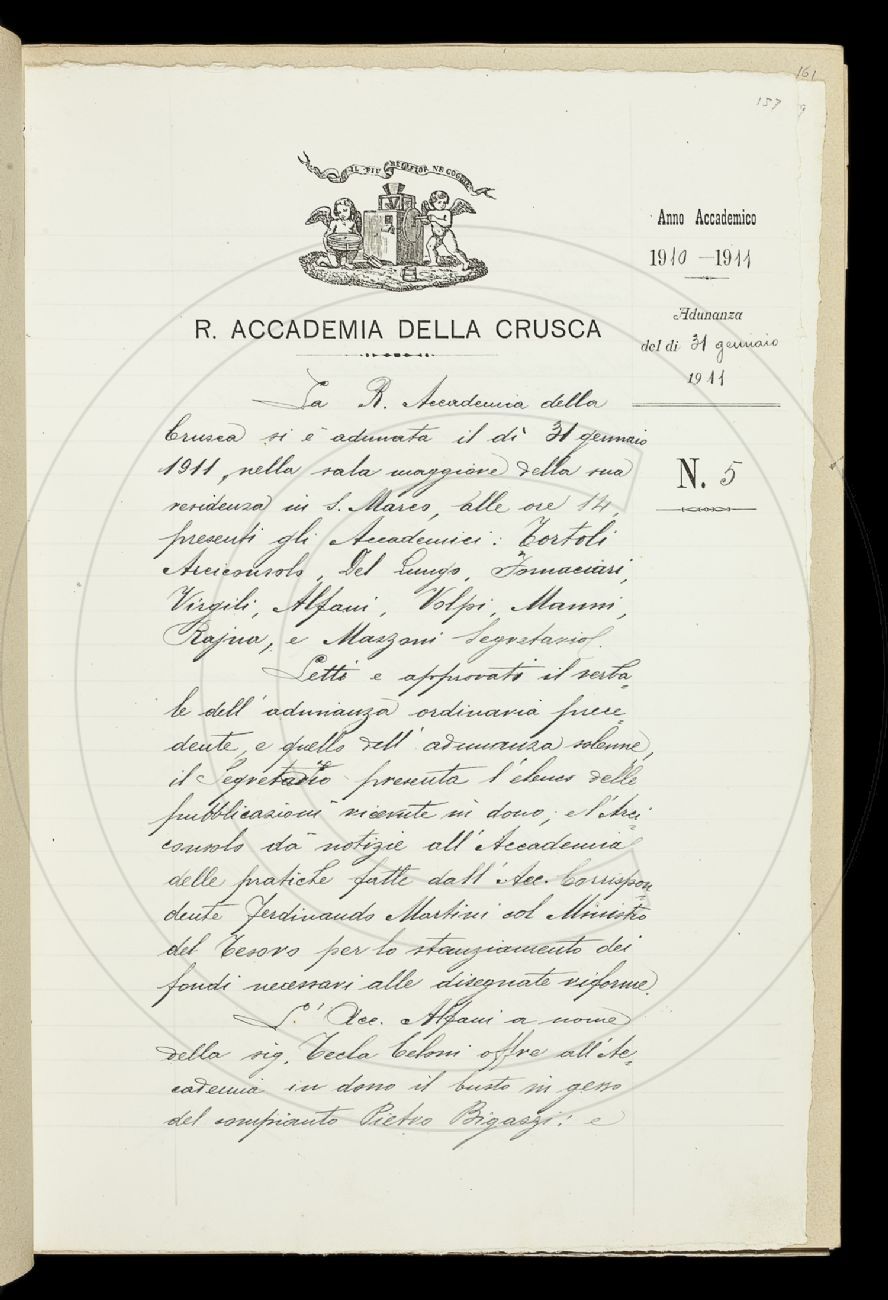 161
157
9
IL PIÙ BEL FIOR NE COGLIE
Anno Accademico
1910-1911
Adunanza
del dì 31 gennaio
1911
N. 5
R. ACCADEMIA DELLA CRUSCA
La R. Accademia della
Crusca si è adunata il dì 31 gennaio
1911, nella sala maggiore della sua
residenza in S. Marco, alle ore 14,
presenti gli Accademici: Tortoli
Arciconsolo, Del Lungo, Fornaciari,
Virgili, Alfani, Volpi, Manni,
Rajna, e Mazzoni Segretario.
Letti e approvati il verba-
le dell'adunanza ordinaria prece-
dente, e quello dell'adunanza solenne,
il Segretario presenta l'elenco delle
pubblicazioni ricevute in dono; e l'Arci-
consolo dà notizie all'Accademia
delle pratiche fatte dall'Acc. Corrispon-
dente Ferdinando Martini col Ministro
del Tesoro per lo stanziamento dei
fondi necessari alle disegnate riforme.
L'Acc. Alfani a nome
della sig. Tecla Celoni offre all'Ac-
cademia in dono il busto in gesso
del compianto Pietro Bigazzi: e